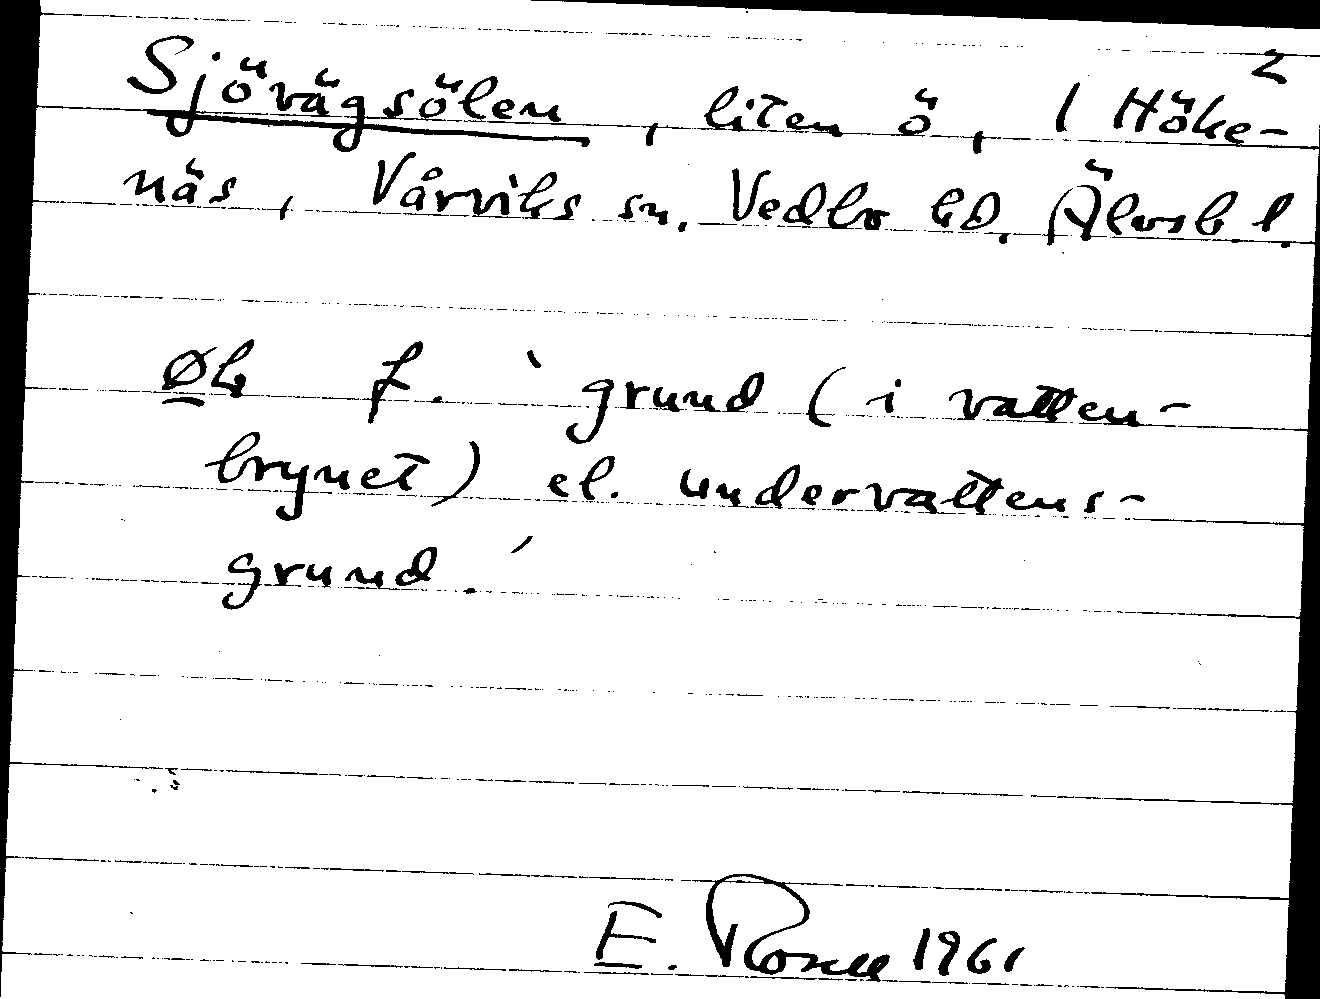 2
Sjövägsölen, liten ö, 1 Höke-
näs, Vårviks sn. Vedbo hd. Älvsb. l.
øl f. `grund (i vatten-
brynet) el. undervattens-
grund.´
E. 1961